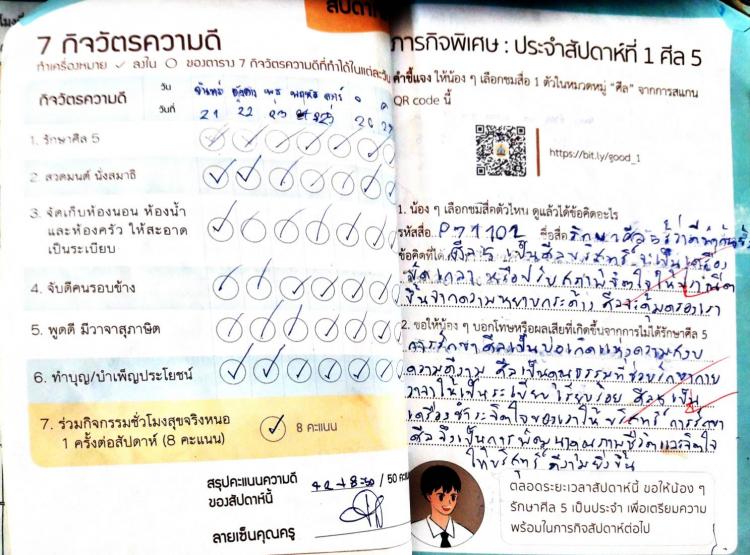 สัปดาห์
7 กิจวัตรความดี
ทำเครื่องหมาย ✓ ลงใน ○ ของตาราง 7 กิจวัตรความดีที่ทำได้ในแต่ละวัน
กิจวัตรความดี
วัน จันทร์ อังคาร พุธ พฤหัส ศุกร์ ส
วันที่ 21 22 23 25 26
1. รักษาศีล 5
2. สวดมนต์ นั่งสมาธิ
3. จัดเก็บห้องนอน ห้องน้ำ
และห้องครัว ให้สะอาด
เป็นระเบียบ
4. จับดีคนรอบข้าง
5. พูดดี มีวาจาสุภาษิต
6. ทำบุญ/บำเพ็ญประโยชน์
7. ร่วมกิจกรรมชั่วโมงสุขจริงหนอ
1 ครั้งต่อสัปดาห์ (8 คะแนน)
✓ 8 คะแนน
สรุปคะแนนความดี 42+8=50 / 50
ของสัปดาห์นี้
ลายเซ็นคุณครู
ภารกิจพิเศษ : ประจำสัปดาห์ที่ 1 ศีล 5
คำชี้แจง ให้น้อง ๆ เลือกชมสื่อ 1 ตัวในหมวดหมู่ "ศีล" จากการสแกน
QR code นี้
https://bit.ly/good_1
1. น้อง ๆ เลือกชมสื่อตัวไหน ดูแล้วได้ข้อคิดอะไร
รหัสสื่อ P71102 ชื่อสื่อ รักษาศีล
ข้อคิดที่ได้ ศีล 5 เป็นศีลบริสุทธิ์ จะเป็นเครื่อง
ขัดเกลา หรือปรับสภาพจิตใจให้ประณีต
ขึ้นจากความหยาบกระด้าง ศีลจะคุ้มครองเรา
2. ขอให้น้อง ๆ บอกโทษหรือผลเสียที่เกิดขึ้นจากการไม่ได้รักษาศีล 5
การรักษาศีลเป็นบ่อเกิดแห่งความสงบ
ความดีงาม ศีลเป็นคุณธรรมที่ช่วยรักษากาย
วาจาให้เป็นระเบียบเรียบร้อย ศีล เป็น
เครื่องชำระจิตใจของเราให้ บริสุทธิ์ การรักษา
ศีล จึงเป็นการพัฒนาคุณภาพชีวิตและจิตใจ
ให้บริสุทธิ์ ดีงามยิ่งขึ้น
ตลอดระยะเวลาสัปดาห์นี้ ขอให้น้อง ๆ
รักษาศีล 5 เป็นประจำ เพื่อเตรียมความ
พร้อมในภารกิจสัปดาห์ต่อไป